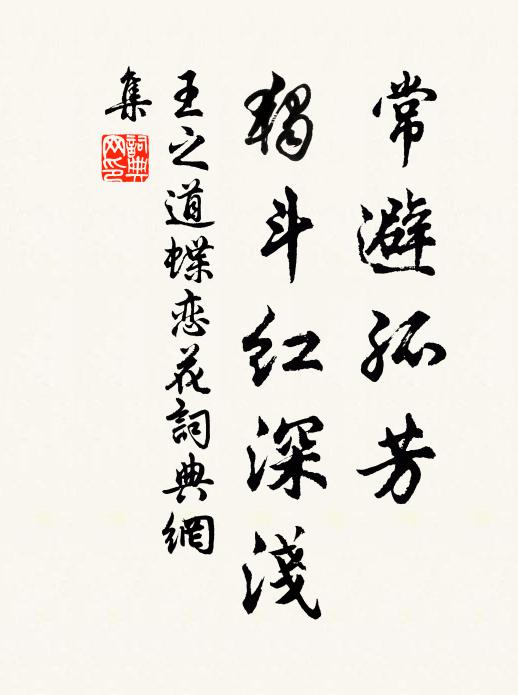 常避孤芳
獨斗红深淺
王之道蝶恋花詞典網
集
詞典
网印